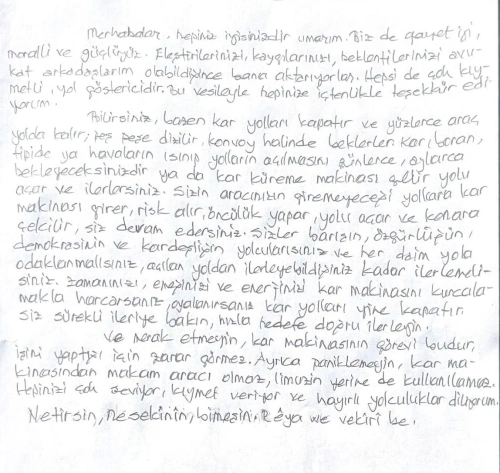 Merhabalar, hepiniz iyisinizdir umarım. Biz de gayet iyi,
moralli ve güçlüyüz. Eleştirilerinizi, kaygılarınızı, beklentilerinizi avu-
kat arkadaşlarım olabildiğince bana aktarıyorlar. Hepsi de çok kıy-
metli, yol göstericidir. Bu vesileyle hepinize içtenlikle teşekkür edi-
yorum.
Bilirsiniz, bazen kar yolları kapatır ve yüzlerce araç
yolda kalır, peş peşe dizilir, konvoy halinde beklerler. Kar, boran,
tipide ya havaların ısınıp yolların açılmasını günlerce, aylarca
bekleyeceksinizdir ya da kar küreme makinası gelir yolu
açar ve ilerlersiniz. Sizin aracınızın giremeyeceği yollara kar
makinası girer, risk alır, öncülük yapar, yolu açar ve kenara
çekilir, siz devam edersiniz. Sizler barışın, özgürlüğün,
demokrasinin ve kardeşliğin yolcularısınız ve her daim yola
odaklanmalısınız, açılan yoldan ilerleyebildiğiniz kadar ilerlemeli-
siniz. Zamanınızı, emeğinizi ve enerjinizi kar makinasını kurcala-
makla harcarsanız, oyalanırsanız kar yolları yine kapatır.
Siz sürekli ileriye bakın, hızla hedefe doğru ilerleyin.
Ve merak etmeyin, kar makinasının görevi budur,
işini yaptığı için zarar görmez. Ayrıca paniklemeyin, kar ma-
kinasından makam aracı olmaz, limuzin yerine de kullanılamaz.
Hepinizi çok seviyor, kıymet veriyor ve hayırlı yolculuklar diliyorum.
Netirsin, nesekinin, bimeşin, Rêya we vekirî be.